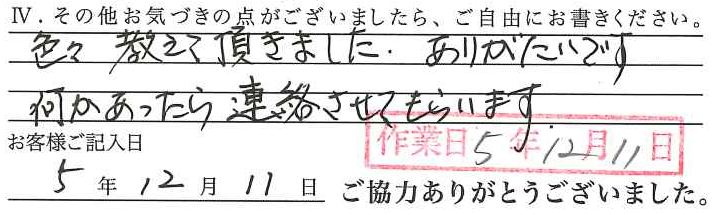 Ⅳ．その他お気づきの点がございましたら、ご自由にお書きください。
色々教えて頂きました。ありがたいです
何かあったら連絡させてもらいます。
お客様ご記入日
作業日5年12月11日
5年12月11日 ご協力ありがとうございました。